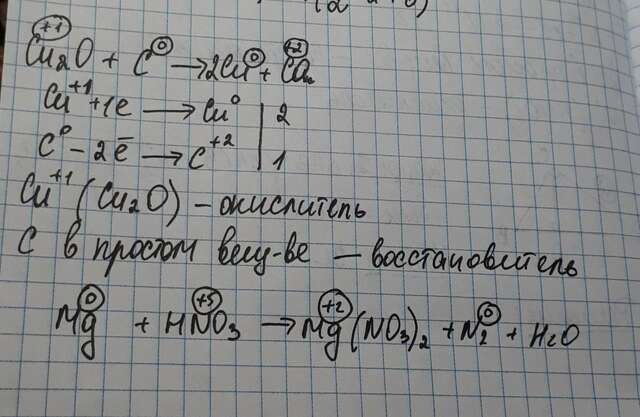 +1 0 0 +2
Cu₂O + C → 2Cu + CO
Cu⁺¹ +1e → Cu⁰ | 2
C⁰ - 2ē → C⁺² | 1
Cu⁺¹ (Cu₂O) - окислитель
C в простом вещ-ве - восстановитель
0 +5 +2 0
Mg + HNO₃ → Mg(NO₃)₂ + N₂ + H₂O